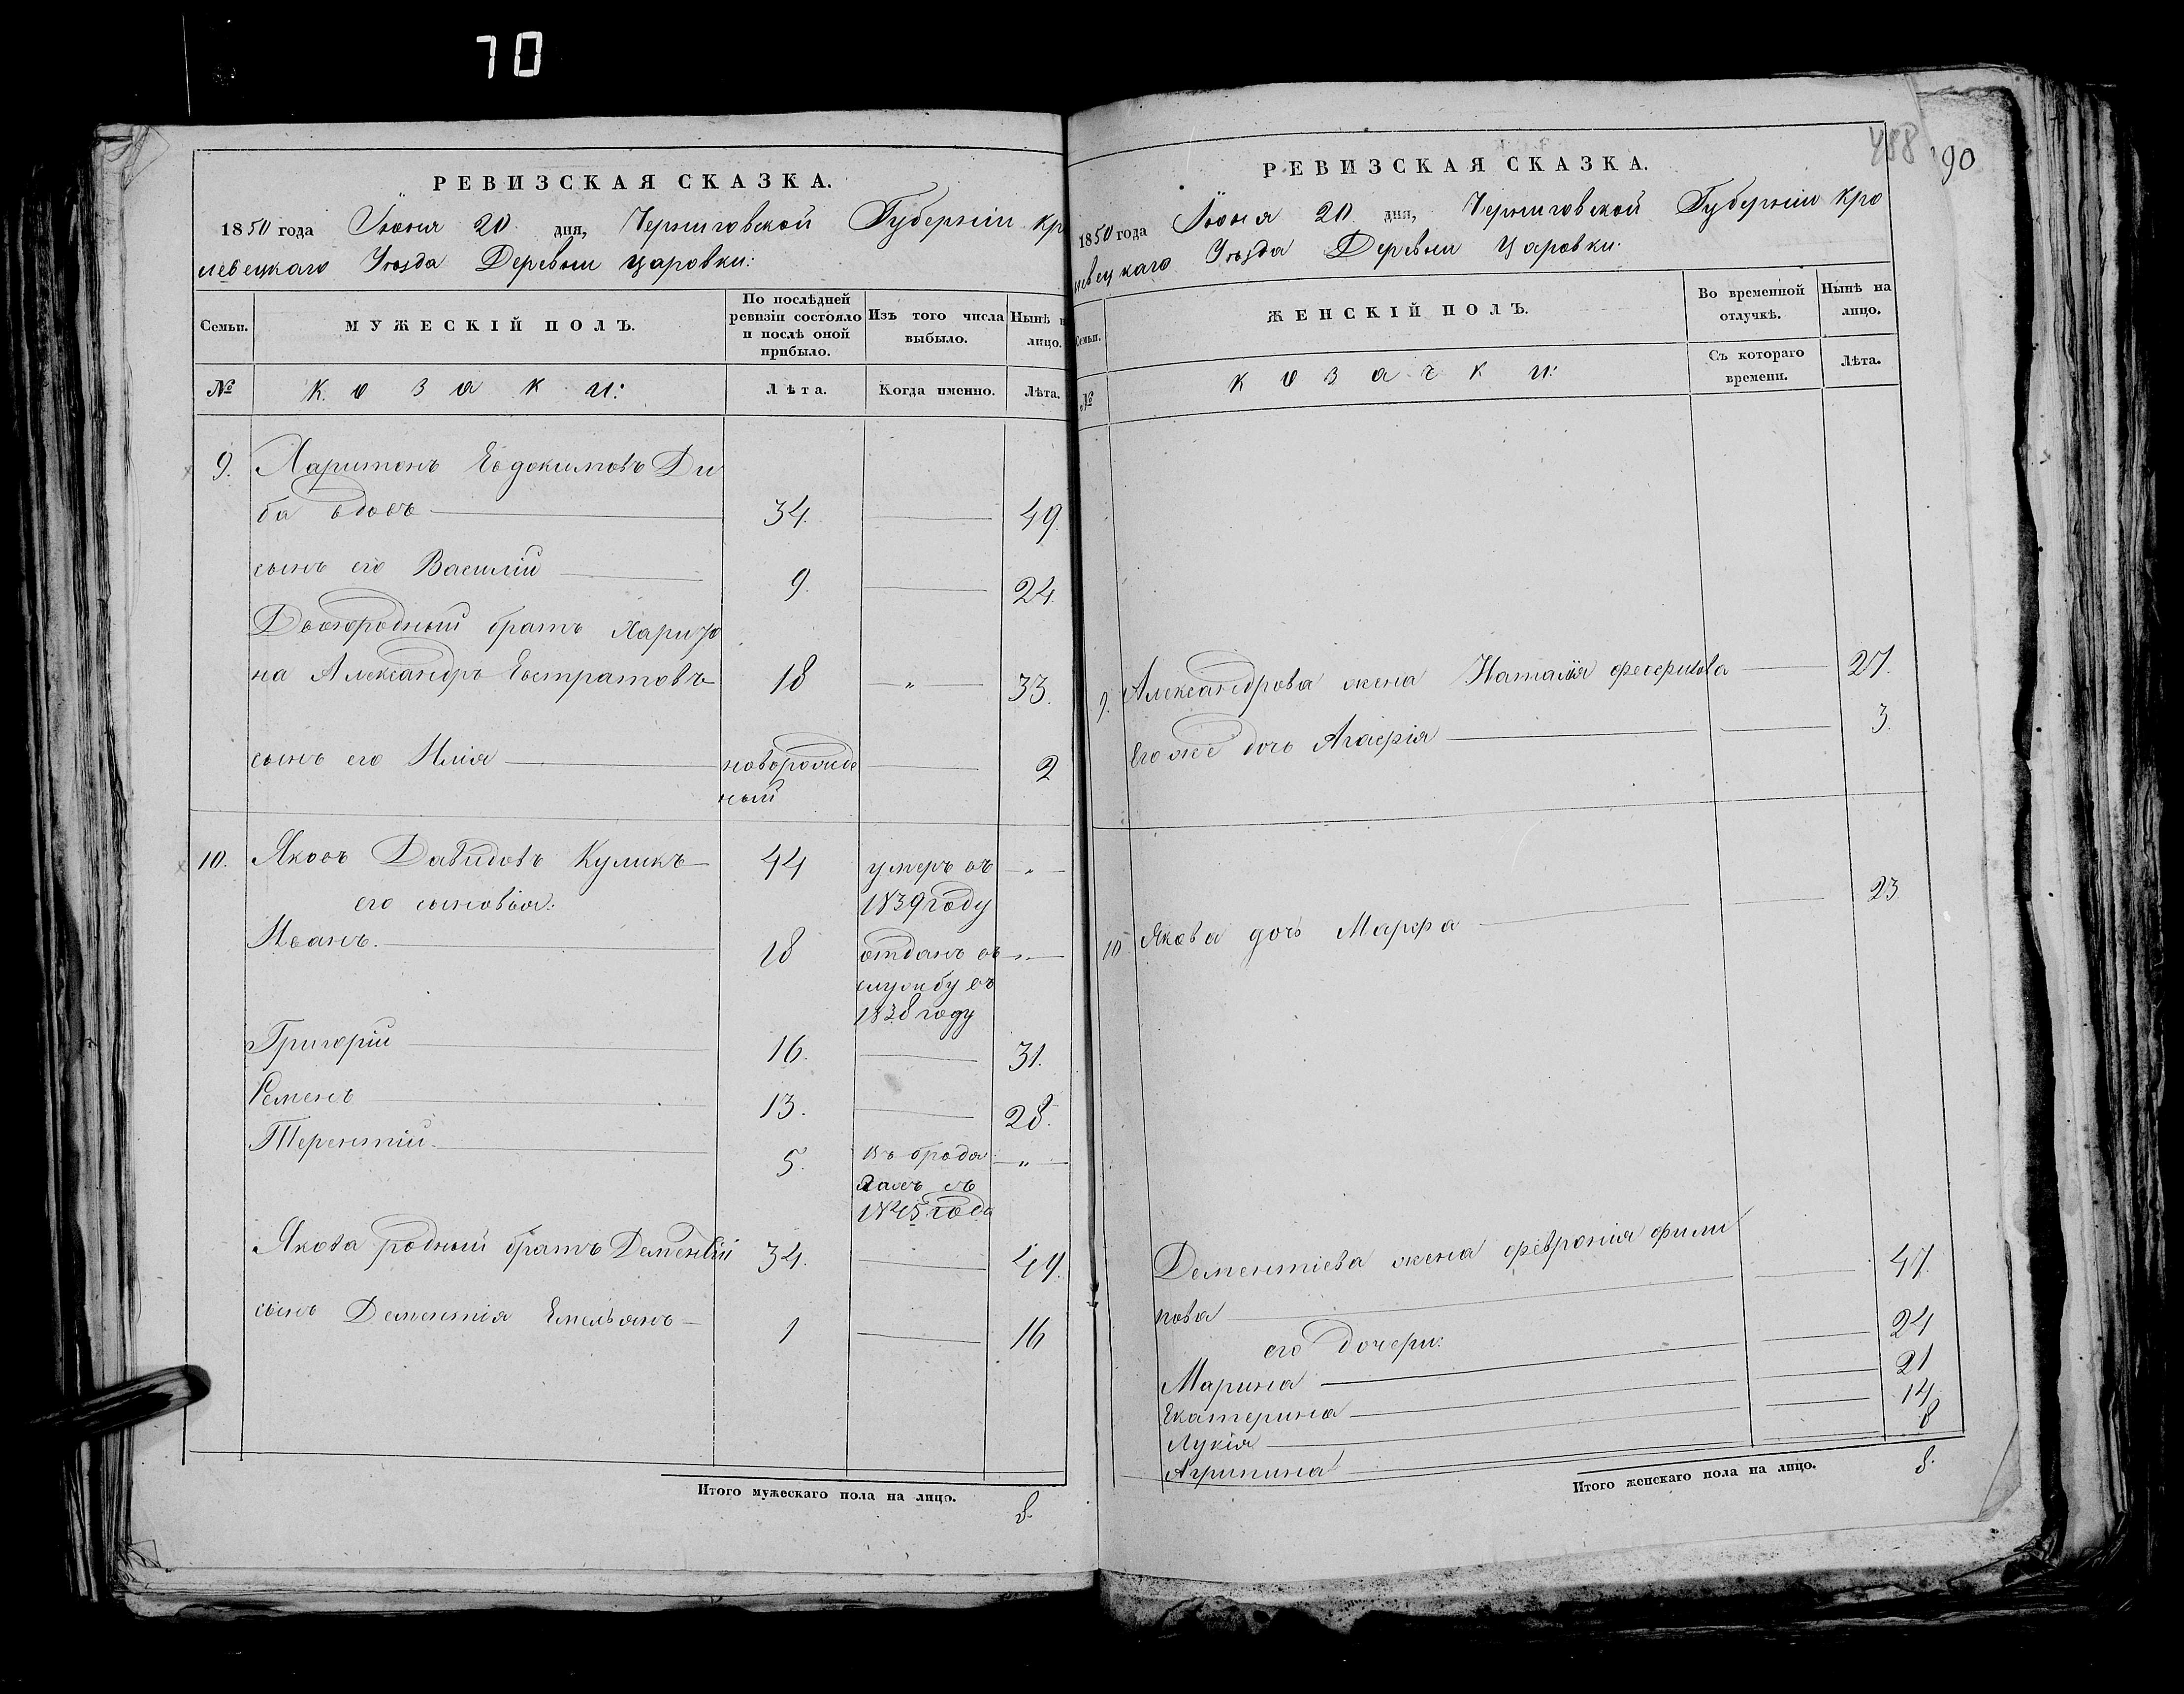 70
РЕВИЗСКАЯ СКАЗКА.
1850 года Іюня 20 дня, Черниговской Губерніи Кро
левецкаго Уѣзда Деревни Царовки:
Семьи.
МУЖЕСКІЙ ПОЛЪ.
По послѣдней ревизіи состояло и послѣ оной прибыло.
Изъ того числа выбыло.
Нынѣ на лицо.
№
Козаки:
Лѣта.
Когда именно.
Лѣта.
9. Харитонъ Евдокимовъ Ди
ба вдовъ 34. 49.
сынъ его Василій 9. 24.
Двоюродный братъ Харито
на Александръ Евстратовъ 18 „ 33.
сынъ его Илія новорожде 2
ный
10. Яковъ Давидовъ Куликъ 44 умеръ въ „
его сыновья: 1839 году
Иванъ. 18 отданъ въ „
службу въ
1838 году
Григорій 16. 31.
Семенъ 13. 28.
Терентій 5. въ брода „
гахъ съ
1845 года
Якова родный братъ Дементій 34. 49.
сынъ Дементія Емельянъ 1 16
Итого мужескаго пола на лицо. 8.
488
90
РЕВИЗСКАЯ СКАЗКА.
1850 года Іюня 20 дня, Черниговской Губерніи Кро
левецкаго Уѣзда Деревни Царовки.
Семьи.
ЖЕНСКІЙ ПОЛЪ.
Во временной отлучкѣ.
Нынѣ на лицо.
№
Козачки:
Съ котораго времени.
Лѣта.
9. Александрова жена Наталія 27.
Его же дочь Агафія 3.
10 Якова дочь Марфа 23.
Дементіева жена Февронія Фили
пова 47.
его дочери:
Марина 24
Екатерина 21
Лукія 14
Агрипина 8
Итого женскаго пола на лицо. 8.